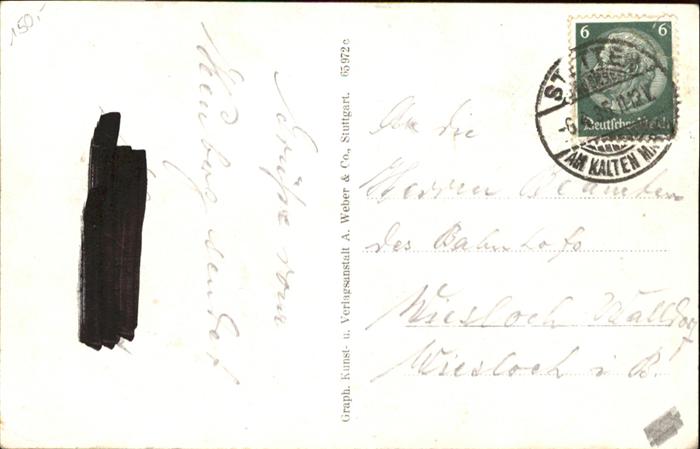 150,-
Grüße vom
Heuberg sendet
Graph. Kunst- u. Verlagsanstalt A. Weber & Co., Stuttgart. 65972c
6 6
Deutsches Reich
STETTEN
AM KALTEN M
An die
Herren Beamten
des Bahnhofs
Wiesloch Walldorf
Wiesloch i B.